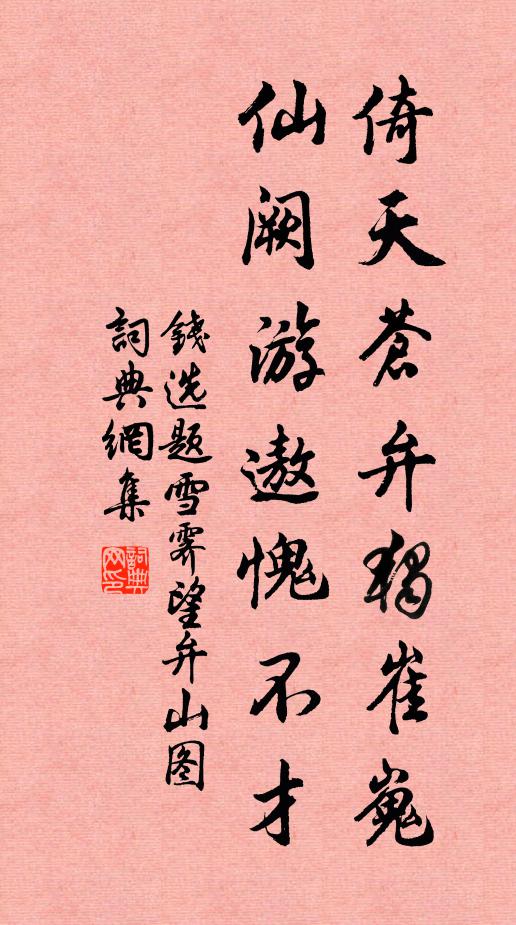 倚天蒼弁獨崔嵬
仙阙游遨愧不才
錢选题雪霁望弁山图
詞典網集
詞典网印